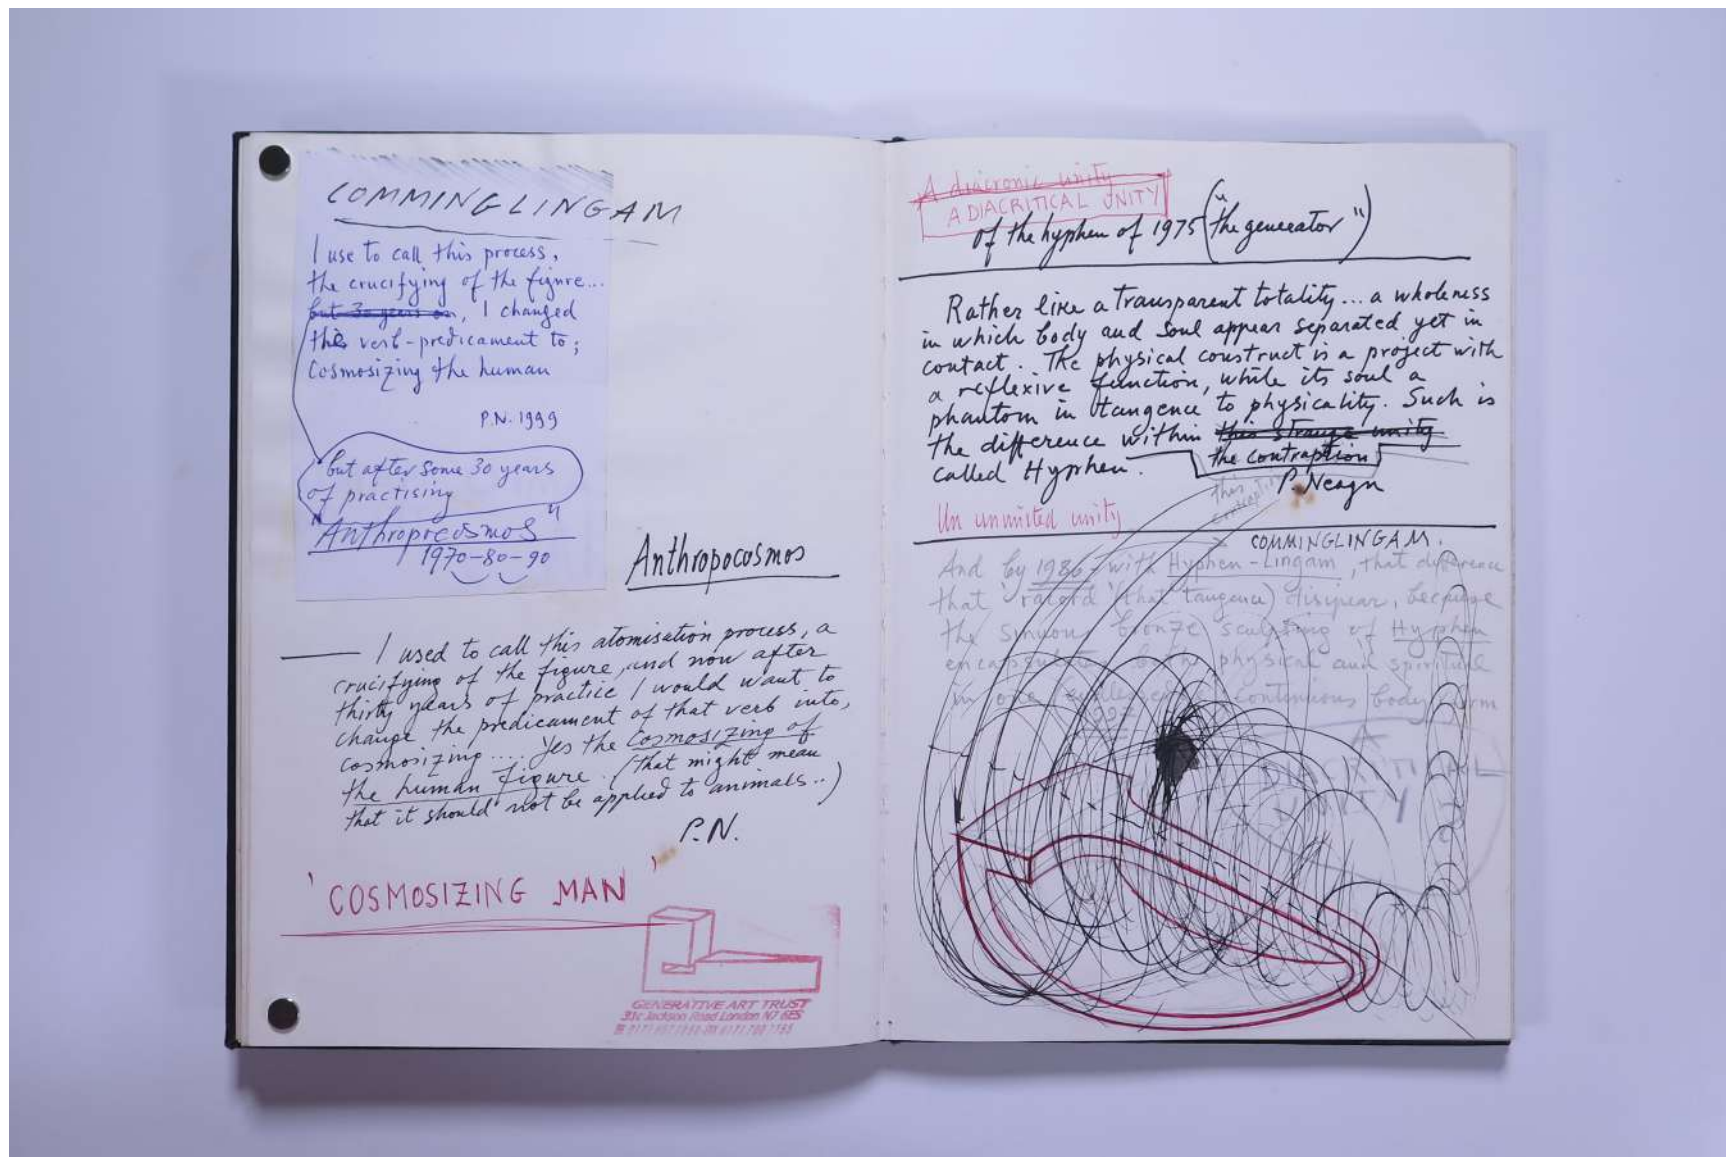 COMMINGLINGAM
I use to call this process,
the crucifying of the figure...
but 30 years on, I changed
this verb-predicament to;
Cosmosizing the human
P.N. 1999
"but after some 30 years
of practising
"Anthropocosmos"
1970-80-90
Anthropocosmos
I used to call this atomisation process, a
crucifying of the figure, and now after
thirty years of practice I would want to
change the predicament of that verb into,
cosmosizing.... Yes the Cosmosizing of
the human figure. (that might mean
that it should not be applied to animals..)
P.N.
'COSMOSIZING MAN'
GENERATIVE ART TRUST
Jackson Road London N7 6ES
A diacronic unity
A DIACRITICAL UNITY
of the hyphen of 1975 ("the generator")
Rather like a transparent totality... a wholeness
in which body and soul appear separated yet in
contact. The physical construct is a project with
a reflexive function, while its soul a
phantom in tangence to physicality. Such is
the difference within this strange unity
the contraption
called Hyphen.
P. Neagu
this
Un unmisted unity
COMMINGLINGAM.
And by 1986 with Hyphen-Lingam, that difference
that (that tangence) disipear, because
the sinuous bronze sculpting of Hyphen
both physical and spiritual
in one continuous body form
A
DIACRITICAL
UNITY